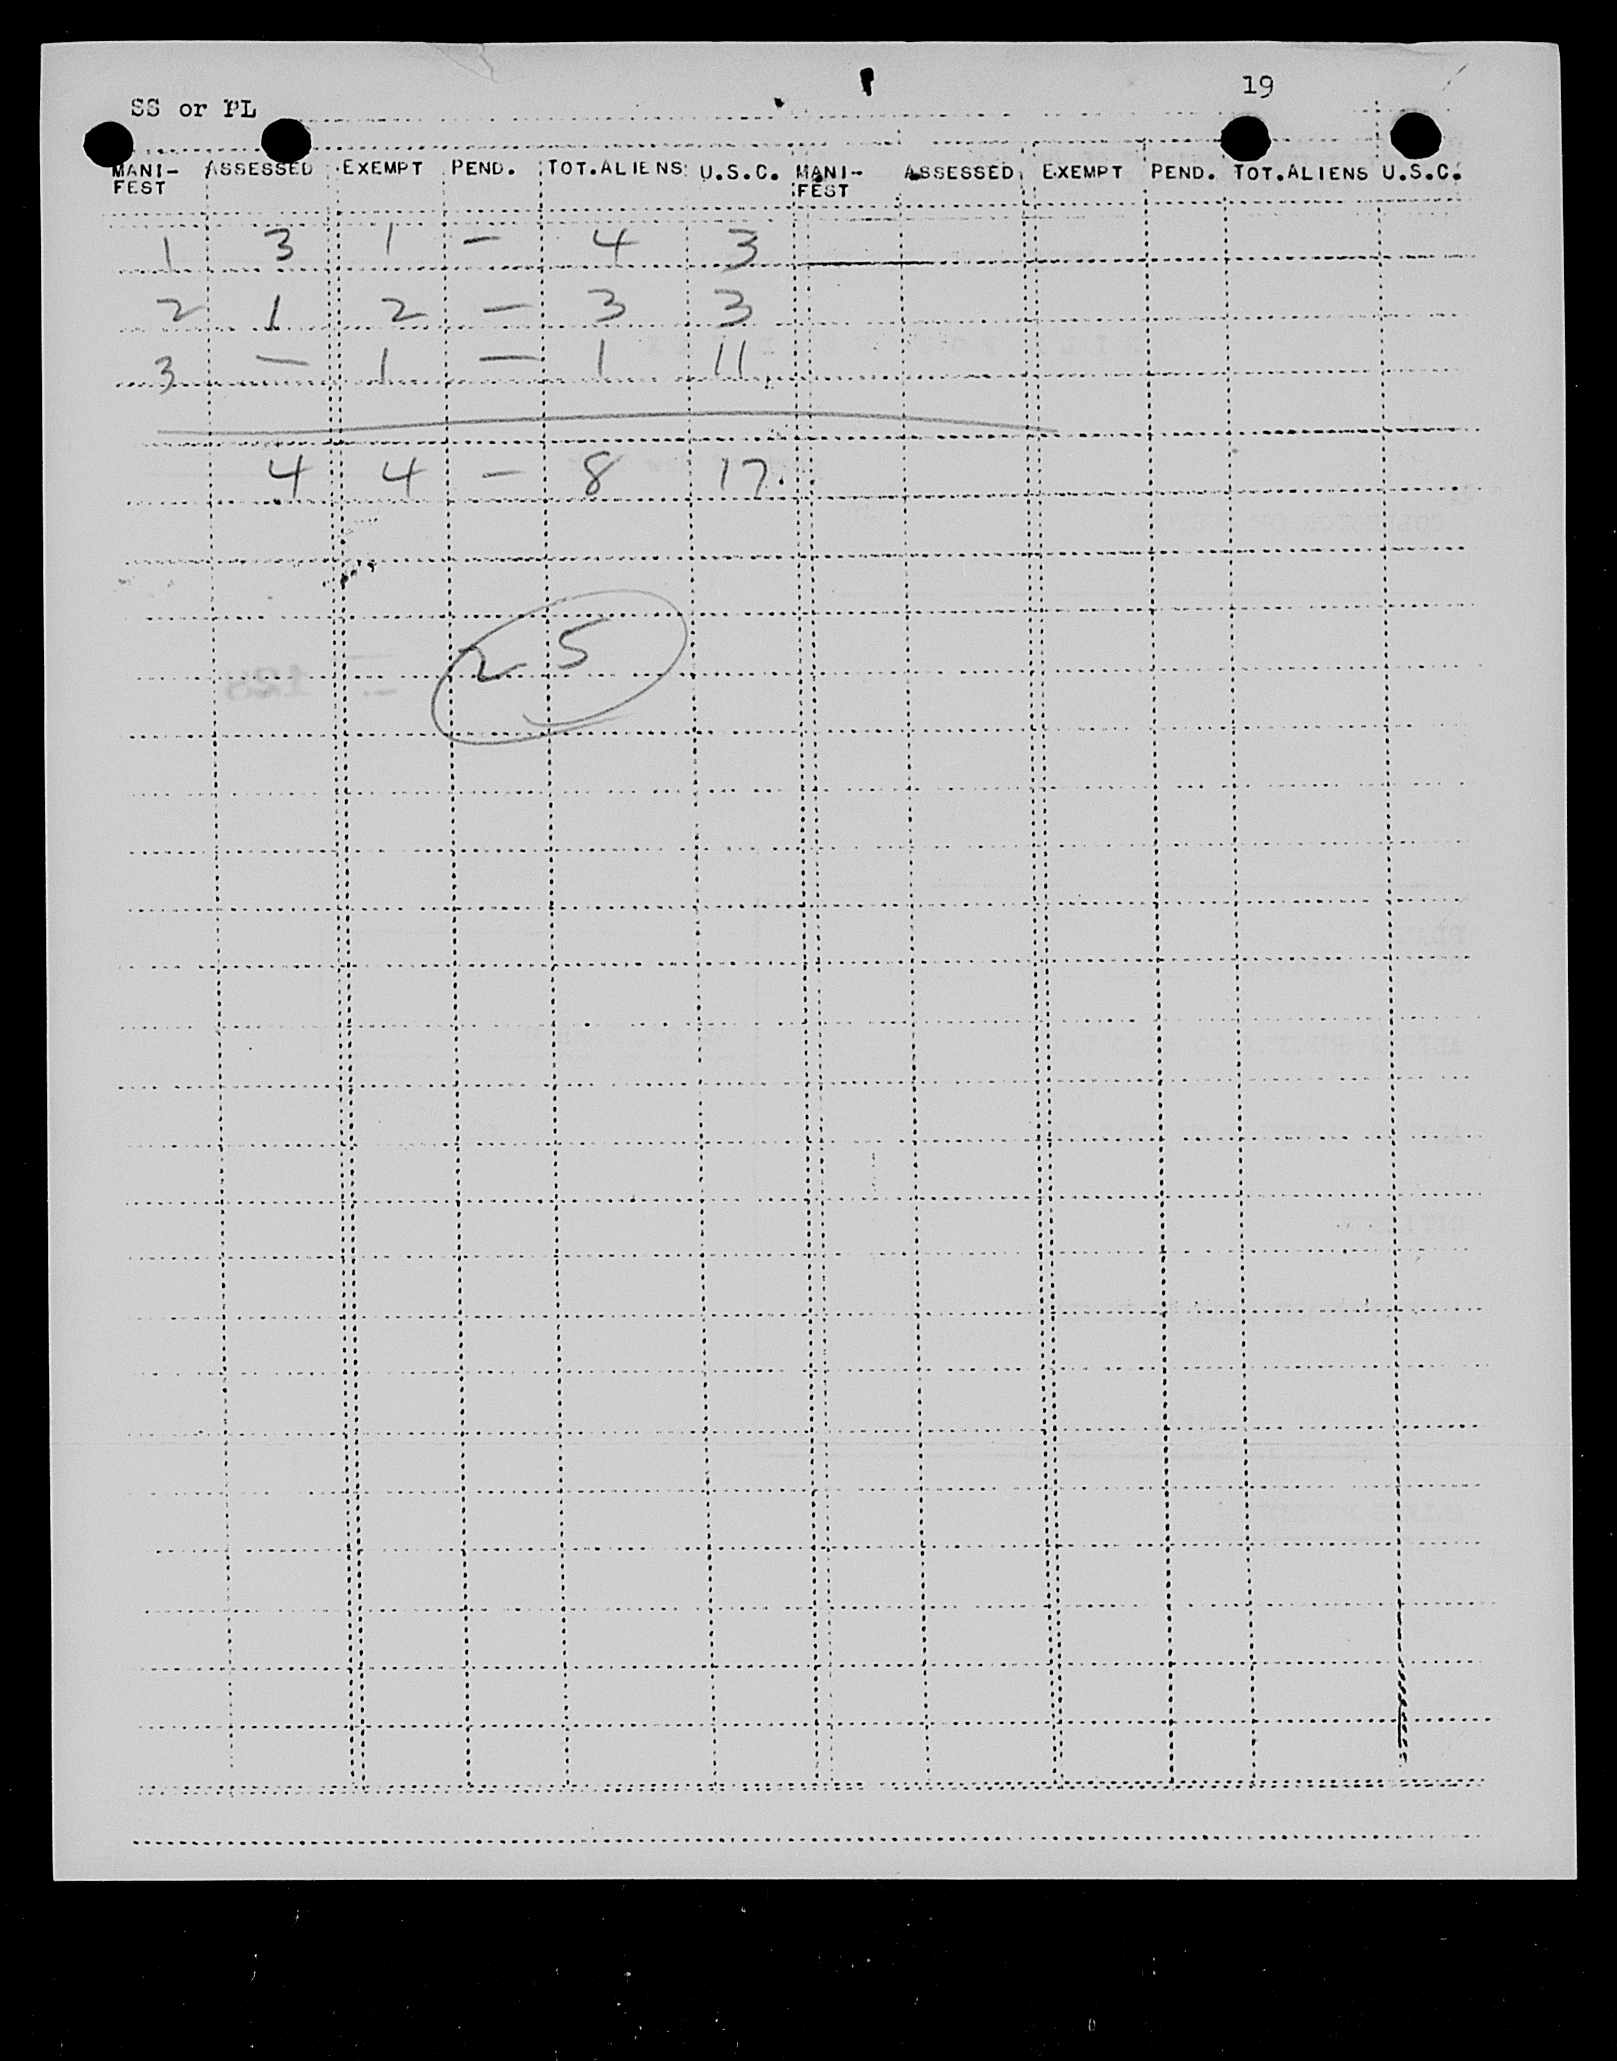 19
SS or PL
MANI-FEST ASSESSED EXEMPT PEND. TOT.ALIENS U.S.C. MANI-FEST ASSESSED EXEMPT PEND. TOT.ALIENS U.S.C.
1 3 1 - 4 3
2 1 2 - 3 3
3 - 1 - 1 11
4 4 - 8 17.
25